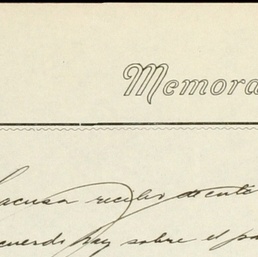 Memora
acusa recibo atento
cuerdo hay sobre el pa